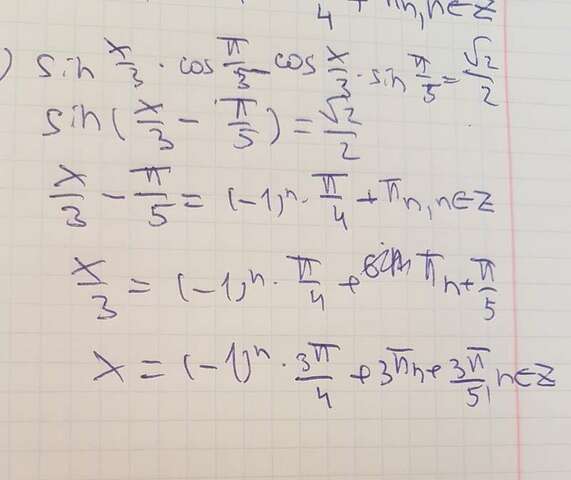 π/4 + πn, n∈Z
) sin x/3 · cos π/3 - cos x/3 · sin π/5 = √2/2
sin(x/3 - π/5) = √2/2
x/3 - π/5 = (-1)ⁿ · π/4 + πn, n∈Z
x/3 = (-1)ⁿ · π/4 + πn + π/5
x = (-1)ⁿ · 3π/4 + 3πn + 3π/5, n∈Z